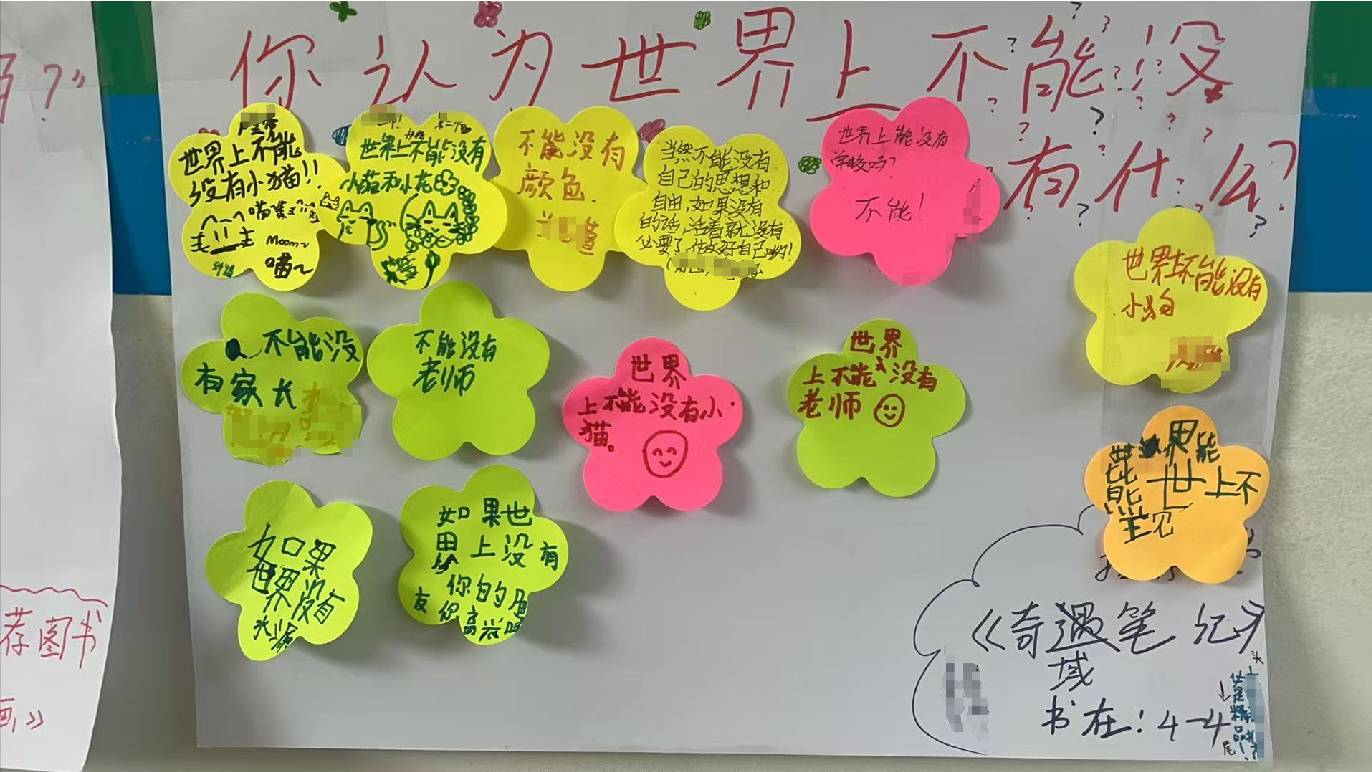 你认为世界上不能没
有什么?
世界上不能
没有小猫!!
喵~
世界上不能没有
不能没有
颜色.
当然不能没有
自己的思想和
自由,如果没有
的话,活着就没有
必要了,做好自己哟!
世界上能没有
学校吗?
不能!
世界上不能没有
小狗
不能没
有家长
不能没有
老师
世界
上不能没有小
猫。
世界
上不能没有
老师
如果
世界没有
如果世
界上没有
你的朋
友你高兴吗
《奇遇笔记》
域
书在:4-4
荐图书
画》